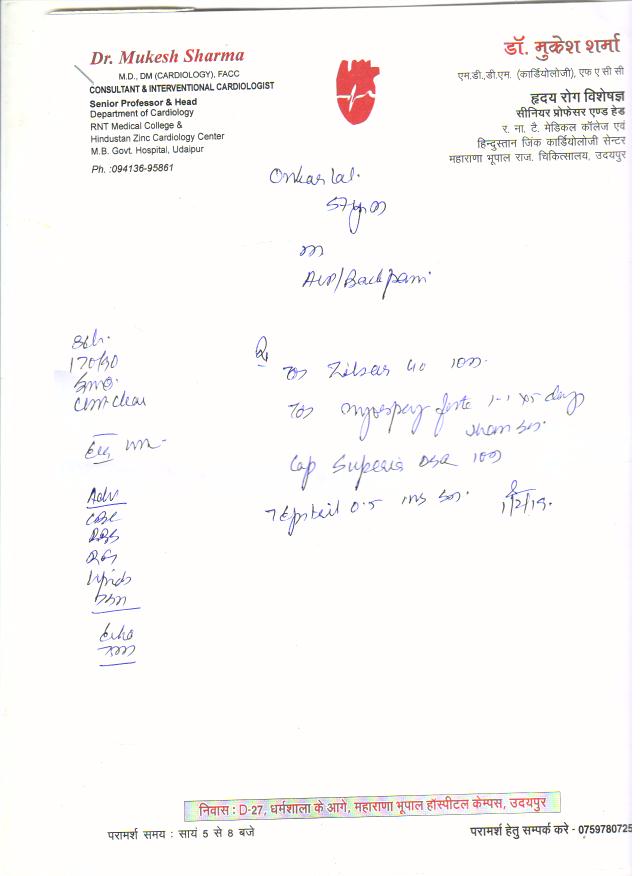 Dr. Mukesh Sharma
M.D., DM (CARDIOLOGY), FACC
CONSULTANT & INTERVENTIONAL CARDIOLOGIST
Senior Professor & Head
Department of Cardiology
RNT Medical College &
Hindustan Zinc Cardiology Center
M.B. Govt. Hospital, Udaipur
Ph. :094136-95861
डॉ. मुकेश शर्मा
एम.डी.,डी.एम. (कार्डियोलोजी), एफ ए सी सी
हृदय रोग विशेषज्ञ
सीनियर प्रोफेसर एण्ड हेड
र. ना. टै. मेडिकल कॉलेज एवं
हिन्दुस्तान जिंक कार्डियोलोजी सेन्टर
महाराणा भूपाल राज. चिकित्सालय, उदयपुर
Onkar lal.
57
m
/Back pain
170/90
Chest clear
Adv
CBC
RBS
Lipids
Echo
Zilsar 40
forte 1-1 x5 days
Cap DSR
0.5
1/2/19.
निवास : D-27, धर्मशाला के आगे, महाराणा भूपाल हॉस्पीटल केम्पस, उदयपुर
परामर्श समय : सायं 5 से 8 बजे
परामर्श हेतु सम्पर्क करे - 0759780725